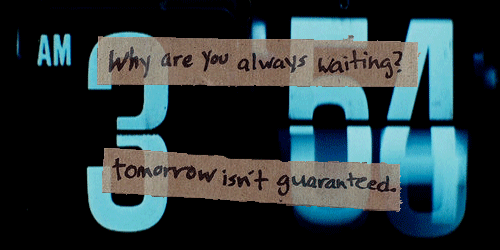 AM 3 54
Why are you always waiting?
tomorrow isn't guaranteed.